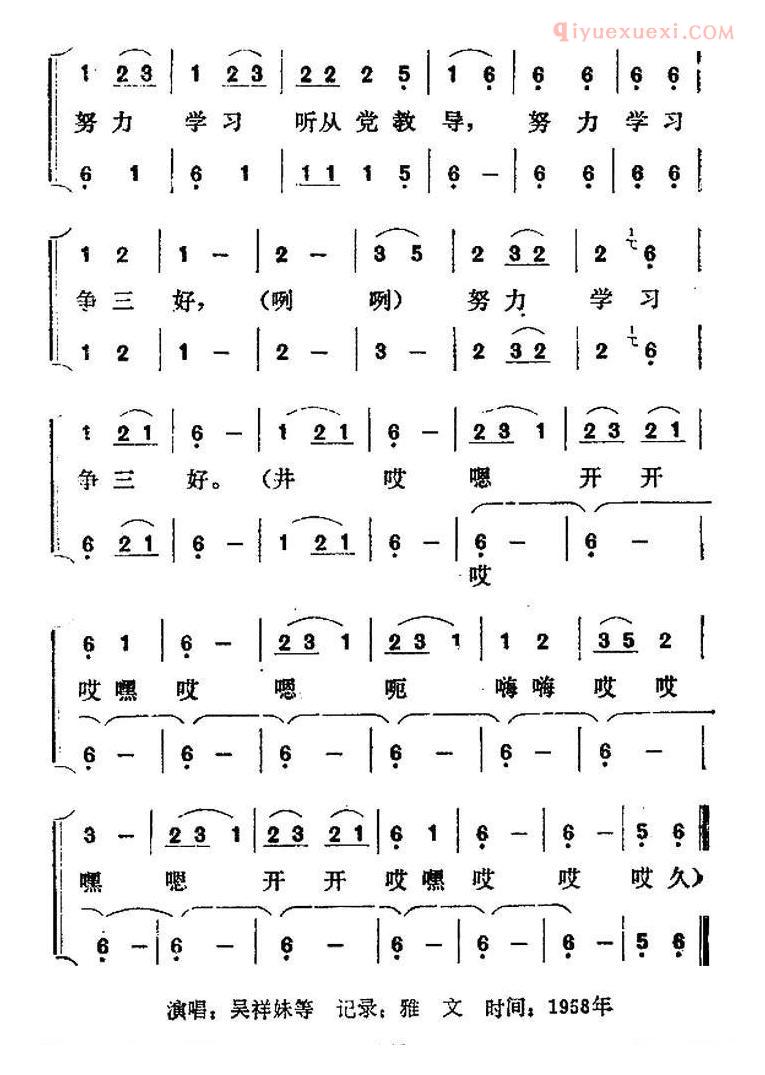 qiyuexuexi.com
1 2 3 | 1 2 3 | 2 2 2 5 | 1 6 | 6 6 | 6 6 |
努力 学习 听从党教导， 努力学习
6 1 | 6 1 | 1 1 1 5 | 6 - | 6 6 | 6 6 |
1 2 | 1 - | 2 - | 3 5 | 2 3 2 | 2 6 |
争三好，（咧 咧）努力 学习
1 2 | 1 - | 2 - | 3 - | 2 3 2 | 2 6 |
1 2 1 | 6 - | 1 2 1 | 6 - | 2 3 1 | 2 3 2 1 |
争三 好。（井 哎 嗯 开开
6 2 1 | 6 - | 1 2 1 | 6 - | 6 - | 6 - |
哎
6 1 | 6 - | 2 3 1 | 2 3 1 | 1 2 | 3 5 2
哎嘿哎 嗯 呃 嗨嗨哎哎
6 - | 6 - | 6 - | 6 - | 6 - | 6 - |
3 - | 2 3 1 | 2 3 2 1 | 6 1 | 6 - | 6 - | 5 6
嘿 嗯 开开哎嘿哎 哎 哎久）
6 - | 6 - | 6 - | 6 - | 6 - | 6 - | 5 6
演唱：吴祥妹等 记录：雅 文 时间：1958年